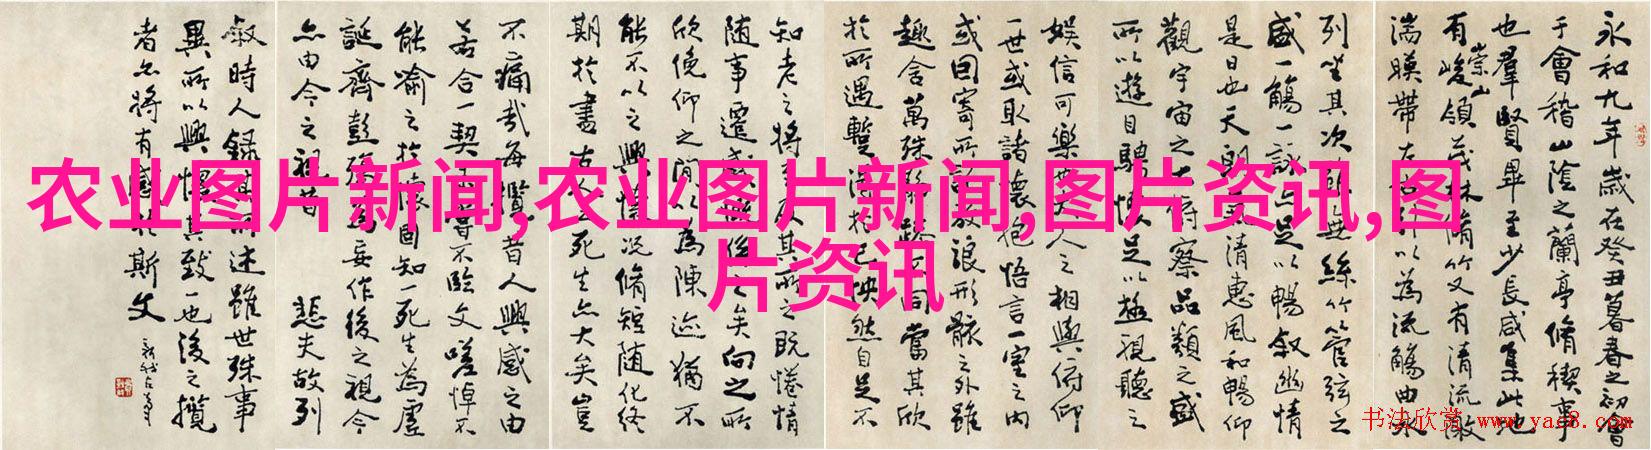 农业图片新闻,农业图片新闻,图片资讯,图
片资讯
永和九年歲在癸丑暮春之初會
于會稽山陰之蘭亭脩稧事
也羣賢畢至少長咸集此地
有崇山峻領茂林脩竹又有清流激
湍暎帶左右引以為流觴曲水
列坐其次雖無絲竹管弦之
盛一觴一詠亦足以暢敘幽情
是日也天朗氣清惠風和暢仰
觀宇宙之大俯察品類之盛
所以遊目騁懷足以極視聽之
娛信可樂也夫人之相與俯仰
一世或取諸懷抱悟言一室之內
或因寄所託放浪形骸之外雖
趣舍萬殊靜躁不同當其欣
於所遇暫得於己怏然自足不
知老之將至及其所之既惓情
隨事遷感慨係之矣向之所
欣俛仰之間以為陳迹猶不
能不以之興懷況脩短隨化終
期於盡古人云死生亦大矣豈
不痛哉每攬昔人興感之由
若合一契未嘗不臨文嗟悼不
能喻之於懷固知一死生為虛
誕齊彭殤為妄作後之視今
亦由今之視昔 悲夫故列
敘時人錄其所述雖世殊事
異所以興懷其致一也後之攬
者亦將有感於斯文
书法欣赏 www.yac8.com